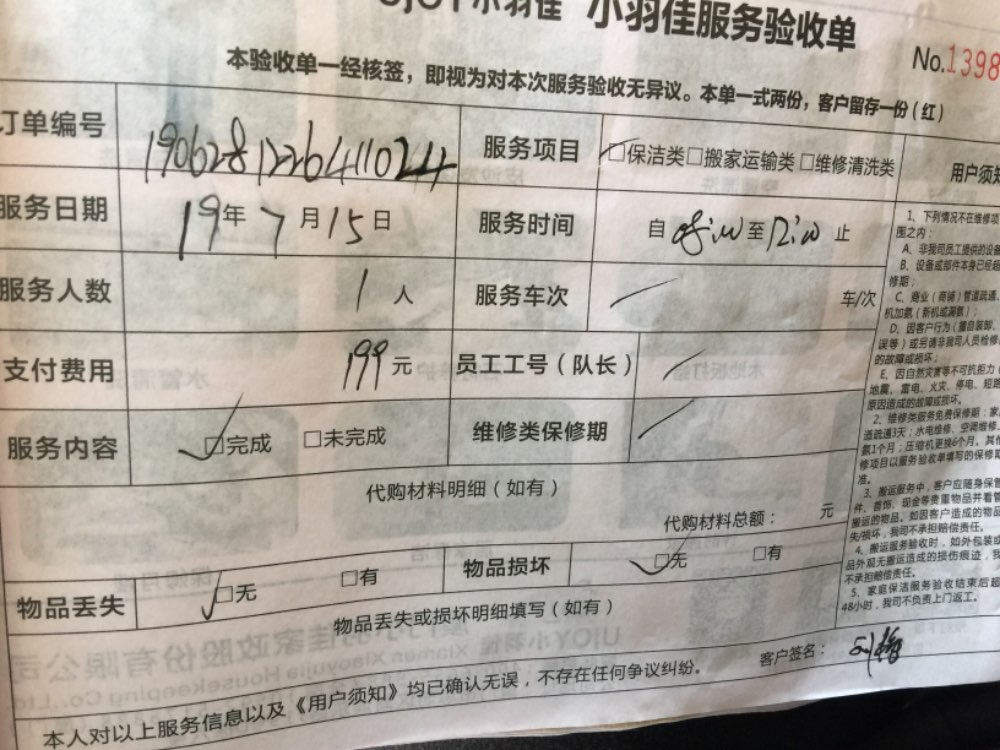 UJOY小羽佳 小羽佳服务验收单
No.1398
本验收单一经核签，即视为对本次服务验收无异议。本单一式两份，客户留存一份（红）
订单编号 190628122641024 服务项目 □保洁类□搬家运输类□维修清洗类
用户须知
服务日期 19年7月15日 服务时间 自 至 止
服务人数 1人 服务车次 车/次
支付费用 199元 员工工号（队长）
服务内容 □完成 □未完成 维修类保修期
代购材料明细（如有）
代购材料总额： 元
物品丢失 □无 □有 物品损坏 □无 □有
物品丢失或损坏明细填写（如有）
本人对以上服务信息以及《用户须知》均已确认无误，不存在任何争议纠纷。 客户签名：
1、下列情况不在维修项
围之内：
A、非我司员工提供的设备
B、设备或部件本身已经超
修期；
C、商业（商铺）管道疏通、
机加氨（新机或漏氨）；
D、因客户行为（擅自装卸、
误等）或另请非我司人员检修
的故障或损坏；
E、因自然灾害等不可抗拒力（
地震、雷电、火灾、停电、短路
原因造成的故障或损坏。
2、维修类服务免费保修期：家
道疏通3天；水电维修、空调维修、
氨1个月；压缩机更换6个月。其他
修项目以服务验收单填写的保修期
准。
3、搬运服务中，客户应随身保管
件、首饰、现金等贵重物品并看管
搬运的物品。如因客户造成的物品
失/损坏，我司不承担赔偿责任。
4、搬运服务验收时，如外包装或
品外观无搬运造成的损伤痕迹，我
不承担赔偿责任。
5、家庭保洁服务验收结束后超
48小时，我司不负责上门返工。